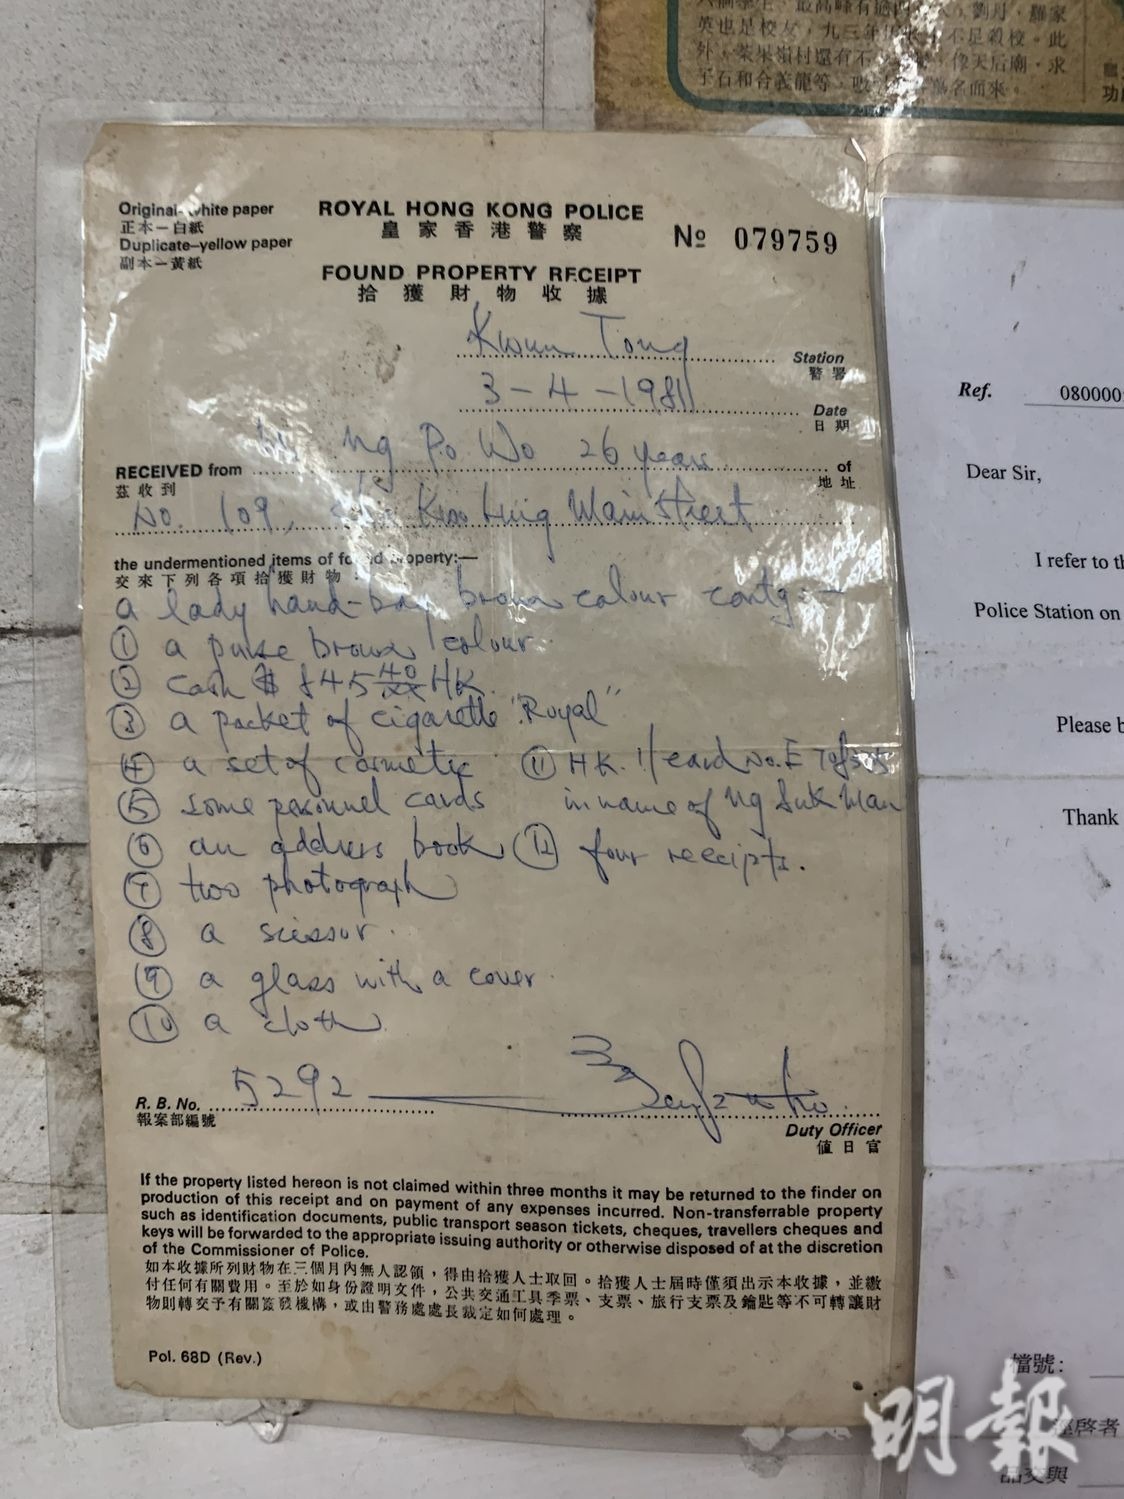 英也是校友，九三年
外，茶果嶺村還有不　像天后廟，求
子石和合義龍等，　名而來。
Original-white paper
正本一白紙
Duplicate-yellow paper
副本一黃紙
ROYAL HONG KONG POLICE
皇家香港警察
№ 079759
FOUND PROPERTY RECEIPT
拾獲財物收據
Kwun Tong Station
警署
3-4-1981 Date
日期
RECEIVED from Ng Po Wo 26 years of
茲收到 地址
No. 109, Kwo Ling Main Street
the undermentioned items of found property:—
交來下列各項拾獲財物：
a lady hand-bag brown colour contg:-
① a purse brown colour
② Cash $845 40/xx HK.
③ a packet of cigarette "Royal"
④ a set of cosmetic ⑪ HK. I/card No. E
⑤ some personnel cards in name of Ng Suk Man
⑥ an address book ⑫ four receipts.
⑦ two photograph
⑧ a scissor.
⑨ a glass with a cover.
⑩ a cloth
R. B. No. 5292
報案部編號
Duty Officer
值日官
If the property listed hereon is not claimed within three months it may be returned to the finder on
production of this receipt and on payment of any expenses incurred. Non-transferrable property
such as identification documents, public transport season tickets, cheques, travellers cheques and
keys will be forwarded to the appropriate issuing authority or otherwise disposed of at the discretion
of the Commissioner of Police.
如本收據所列財物在三個月內無人認領，得由拾獲人士取回。拾獲人士屆時僅須出示本收據，並繳
付任何有關費用。至於如身份證明文件，公共交通工具季票、支票、旅行支票及鑰匙等不可轉讓財
物則轉交予有關簽發機構，或由警務處處長裁定如何處理。
Pol. 68D (Rev.)
Ref. 080000
Dear Sir,
I refer to th
Police Station on
Please b
Thank
檔號：
逕啓者
品交與
明報